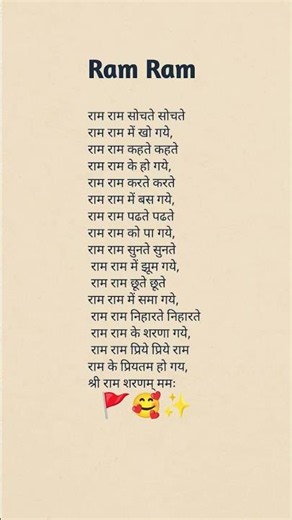 Ram Ram
राम राम सोचते सोचते
राम राम में खो गये,
राम राम कहते कहते
राम राम के हो गये,
राम राम करते करते
राम राम में बस गये,
राम राम पढते पढते
राम राम को पा गये,
राम राम सुनते सुनते
राम राम में झूम गये,
राम राम छूते छूते
राम राम में समा गये,
राम राम निहारते निहारते
राम राम के शरणा गये,
राम राम प्रिये प्रिये राम
राम के प्रियतम हो गय,
श्री राम शरणम् ममः
🚩🥰✨